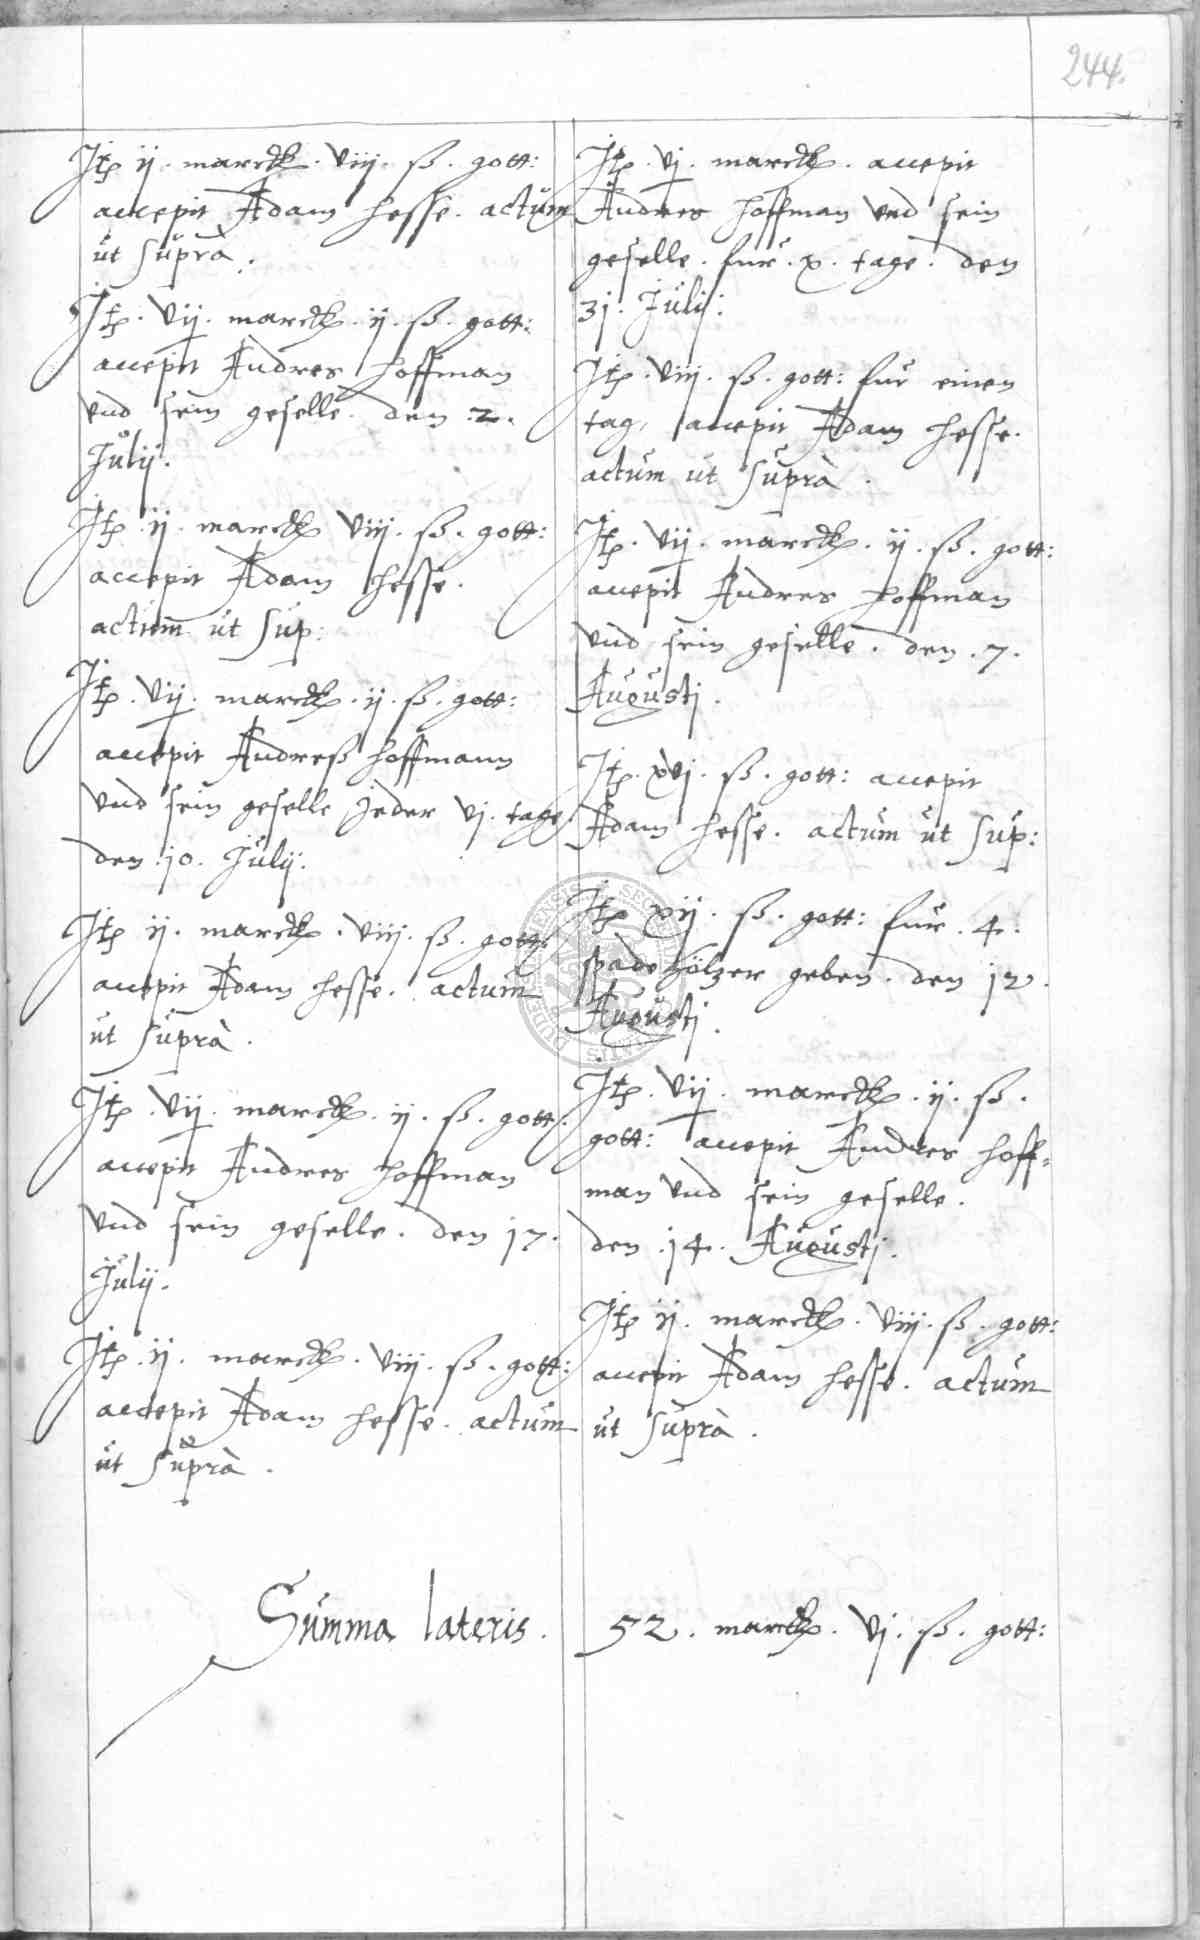 244.
Jtem ij. marck. viij. ß. gott:
accepit Adam Hesse. actum
ut suprà.
Jtem. vij. marck. ij. ß. gott:
accepit Andres Hoffman
vnd sein geselle. den .2.
Julij.
Jtem. ij. marck viij. ß. gott:
accepit Adam Hesse.
actum ut sup:
Jtem. vij. marck. ij. ß. gott:
accepit Andreß Hoffmann
vnd sein geselle jeder vj. tage
den .10. Julij.
Jtem ij. marck. viij. ß. gott:
accepit Adam Hesse. actum
ut suprà.
Jtem. vij. marck. ij. ß. gott:
accepit Andres Hoffman
vnd sein geselle. den 17.
Julij.
Jtem. ij. marck. viij. ß. gott:
accepit Adam Hesse. actum
ut suprà.
Jtem. vj. marck. accepit
Andres Hoffman vnd sein
geselle. fur. x. tage. den
31. Julij:
Jtem. viij. ß. gott: fur einen
tag, accepit Adam Hesse.
actum ut suprà.
Jtem. vij. marck. ij. ß. gott:
accepit Andres Hoffman
vnd sein geselle. den .7.
Augusti.
Jtem. xvj. ß. gott: accepit
Adam Hesse. actum ut sup:
Jtem xij. ß. gott: fur .4.
spade hölzer geben. den 12.
Augusti.
Jtem. vij. marck. ij. ß.
gott: accepit Andres Hoff=
man vnd sein geselle.
den .14. Augusti.
Jtem ij. marck. viij. ß. gott:
accepit Adam Hesse. actum
ut suprà.
Summa lateris. 52. marck. vj. ß. gott: